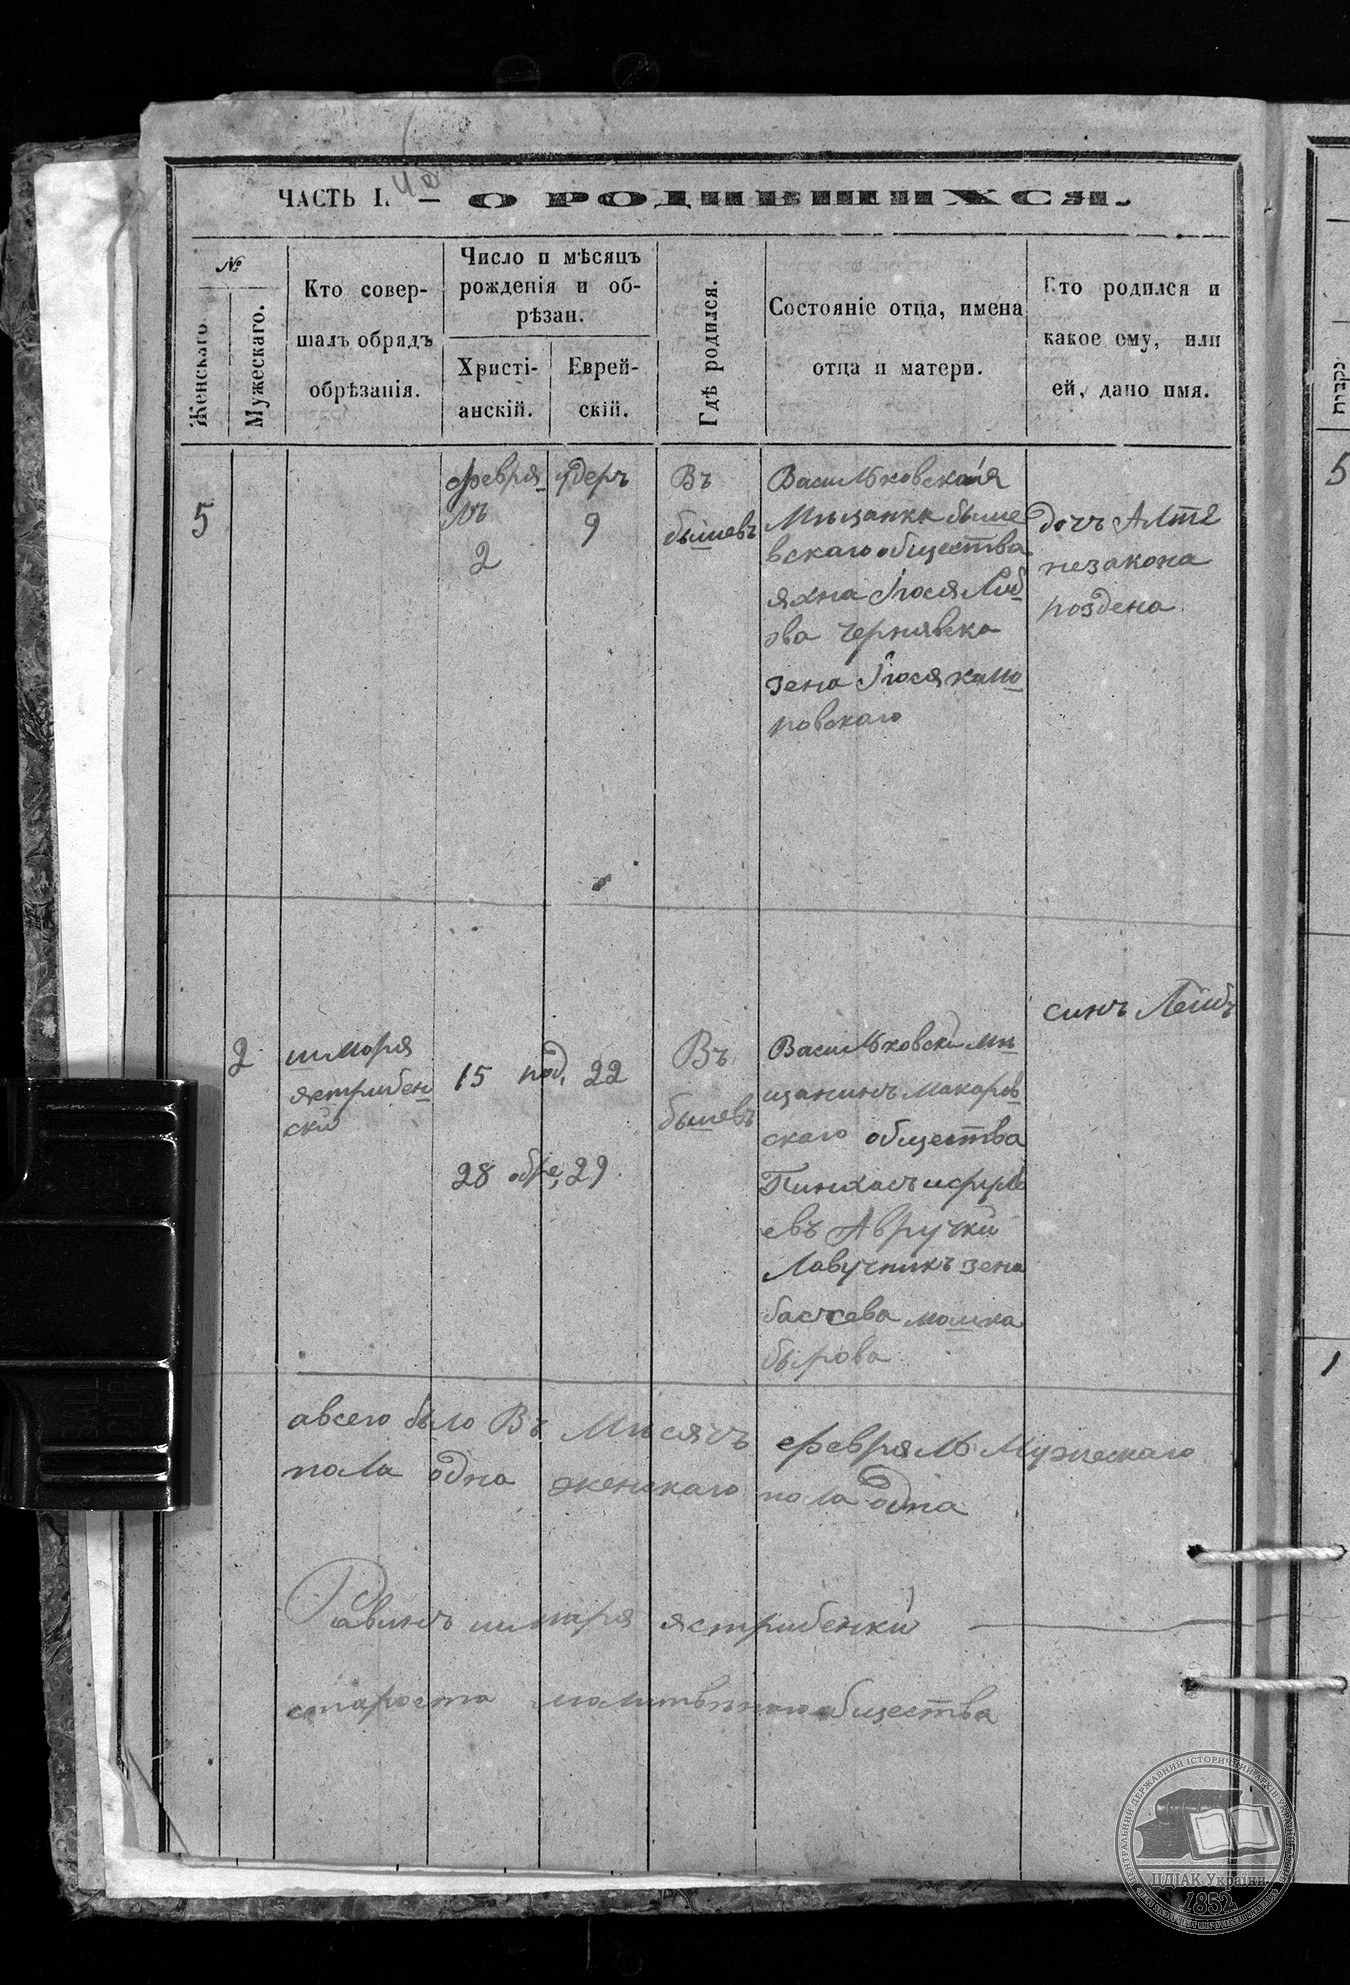 ЧАСТЬ I. — О РОДИВШИХСЯ.
№
Женскаго.
Мужескаго.
Кто совер-
шалъ обрядъ
обрѣзанія.
Число и мѣсяцъ
рожденія и об-
рѣзан.
Христі-
анскій.
Еврей-
скій.
Гдѣ родился.
Состояніе отца, имена
отца и матери.
Кто родился и
какое ему, или
ей, дано имя.
5
февра
лъ
2
адеръ
9
Въ
бышевъ
Васильковская
Мищанка быше
вскаго общества
яхна Іося Либ
ова Чернявска
зена Іося камо
ровскаго
дочъ Алте
незакона
роздена
2
шморя
ястрибен
ски
15 под, 22
28 обре, 29
Въ
бышевъ
Васильковски Ми
щанинъ макаров
скаго общества
Пинхасъ исрул
евъ Авручки
Лавучникъ зена
басчева мошка
бырова
синъ Лейбъ
авсего было Въ Мисячъ февряль Мужескаго
пола одна женскаго пола одна
Равинъ шмаря ястрибенки
староста молитвенаго общества
5
1
ЦДІАК України
1852